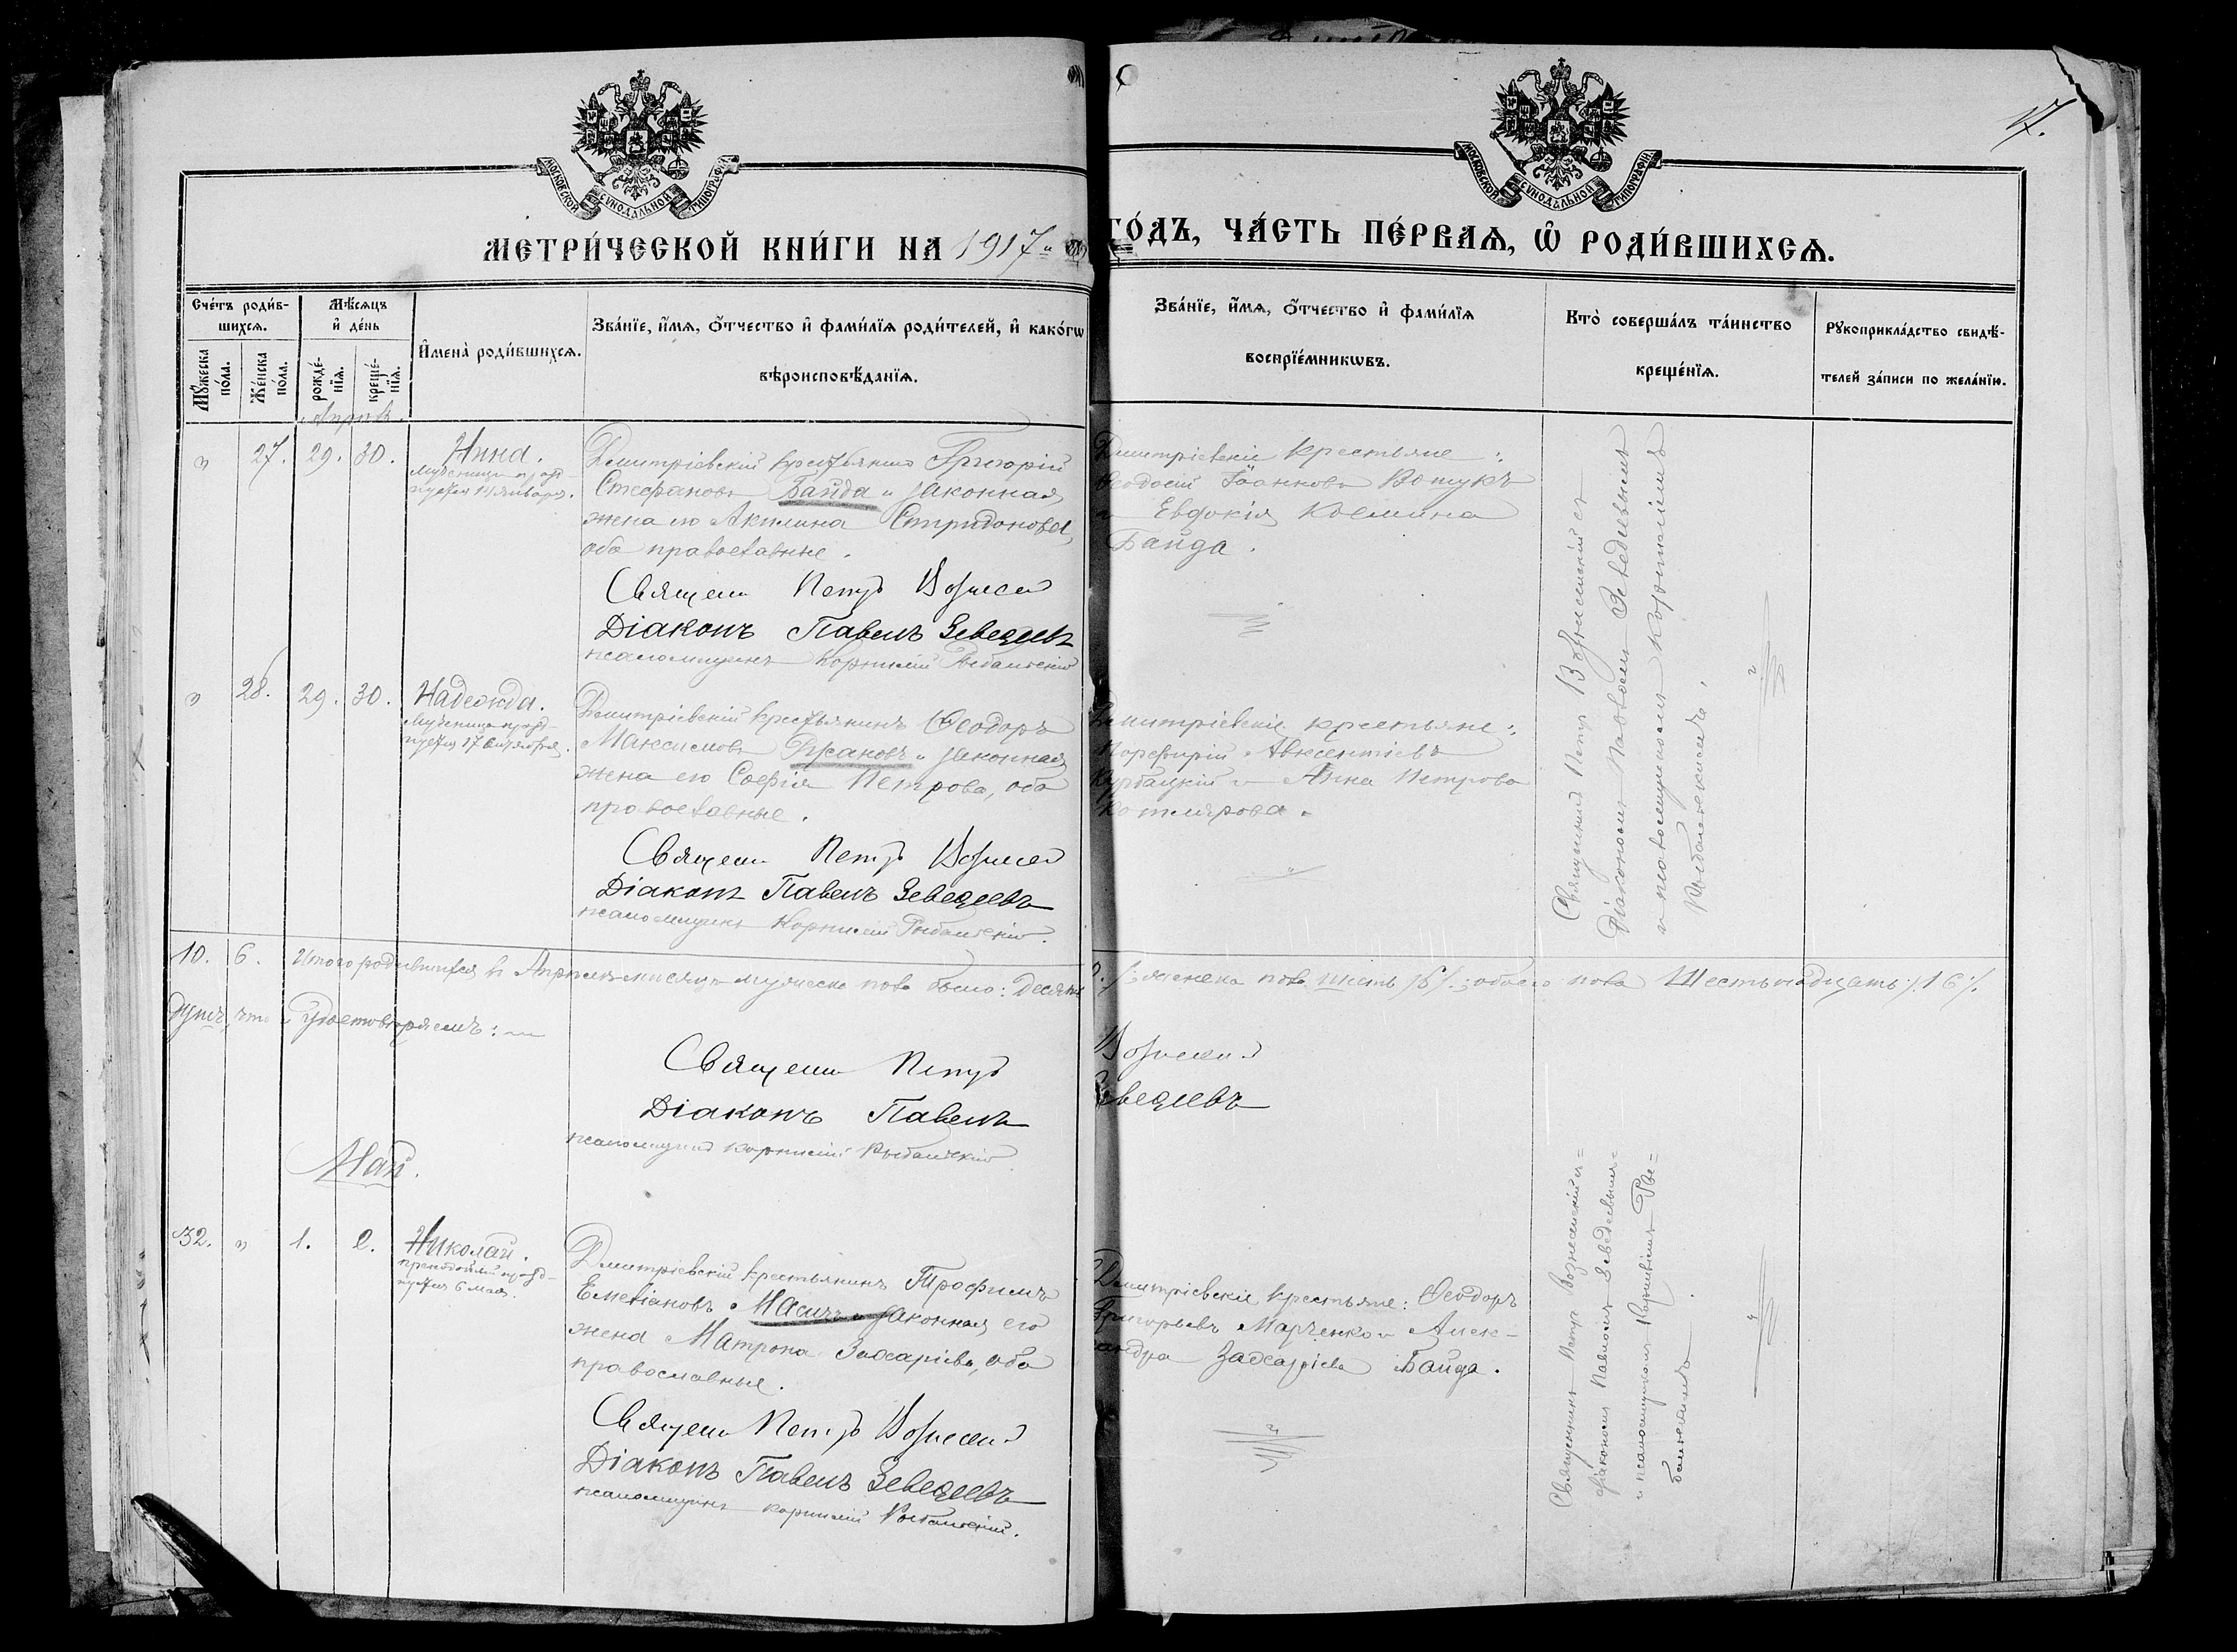 17.
МОСКОВСКОЙ СУНОДАЛЬНОЙ ТИПОГРАФІИ
МОСКОВСКОЙ СУНОДАЛЬНОЙ ТИПОГРАФІИ
МЕТРИ́ЧЕСКОЙ КНИ́ГИ НА 1917й
ГО́ДЪ, ЧА́СТЬ ПЕ́РВАѦ, Ѡ҆ РОДИ́ВШИХСѦ.
Сче́тъ роди́в-
шихсѧ.
Мѣ́сѧцъ
и҆ де́нь
Мꙋ́жеска по́ла.
Же́нска по́ла.
рожде́-
нїѧ.
креще́-
нїѧ.
И҆мена̀ роди́вшихсѧ.
Зва́нїе, и҆́мѧ, ѻ҆́тчество и҆ фами́лїѧ роди́телей, и҆ како́гѡ
вѣроисповѣ́данїѧ.
Зва́нїе, и҆́мѧ, ѻ҆́тчество и҆ фами́лїѧ
воспрїе́мникѡвъ.
Кто̀ соверша́лъ та́инство
креще́нїѧ.
Рꙋкоприкла́дство свидѣ́-
телей за́писи по жела́нїю.
Апрѣль.
27. 29. 30. Нина.
мученица празд-
нуется 14 января.
Димитріевскій крестьянинъ Григорій
Стефановъ Байда и законная
жена его Акилина Спиридонова,
оба православные.
Священ Петръ Вознесен
Діаконъ Павелъ Зеведеевъ
псаломщикъ Корнилій Рыбальскій
Димитріевскіе крестьяне:
Ѳеодосій Іоанновъ
и Евдокія Космина
Байда.
Священникъ Петръ Вознесенскій съ
Діакономъ Павломъ Зеведеевымъ
и псаломщикомъ Корниліемъ
Рыбальскимъ.
28. 29. 30. Надежда.
мученица празд-
нуется 17 сентября.
Димитріевскій крестьянинъ Ѳеодоръ
Максимовъ и законная
жена его Софія Петрова, оба
православные.
Священ Петръ Вознесен
Діаконъ Павелъ Зеведеевъ
псаломщикъ Корнилій Рыбальскій.
Димитріевскіе крестьяне:
Порфирій Авксентіевъ
Курбацкій и Анна Петрова
Котлярова.
10. 6. Итого родившихся въ Апрѣлѣ мѣсяцѣ мужеска пола было: Десять
женска пола шесть /6/.; обоего пола Шестьнадцать /.16/.
душъ, что и удостовѣряемъ:
Священ Петръ
Вознесен
Діаконъ Павелъ
Зеведеевъ
псаломщикъ Корнилій Рыбальскій
Май.
32. 1. 2. Николай.
праздн-
уется 6 мая.
Димитріевскій крестьянинъ Трофимъ
Емеліановъ Масичъ и законная его
жена Матрона Захаріева, оба
православные.
Священ Петръ Вознесен
Діаконъ Павелъ Зеведеевъ
псаломщикъ Корнилій Рыбальскій.
Димитріевскіе крестьяне: Ѳеодоръ
Григорьевъ Марченко и Алек-
сандра Захаріева Байда.
Священникъ Петръ Вознесенскій съ
діакономъ Павломъ Зеведеевымъ
и псаломщикомъ Корниліемъ Ры=
бальскимъ.